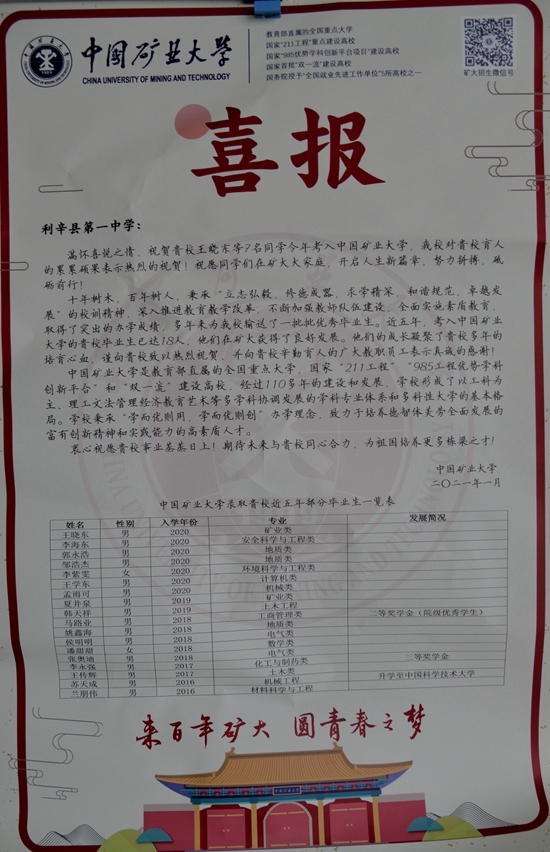 中国矿业大学
CHINA UNIVERSITY OF MINING AND TECHNOLOGY
教育部直属的全国重点大学
国家"211工程"重点建设高校
国家"985优势学科创新平台项目"建设高校
国家首批"双一流"建设高校
国务院授予"全国就业先进工作单位"5所高校之一
矿大招生微信号
喜报
利辛县第一中学：
满怀喜悦之情，祝贺贵校王晓东等7名同学今年考入中国矿业大学，我校对贵校育人
的累累硕果表示热烈的祝贺！祝愿同学们在矿大大家庭，开启人生新篇章，努力拼搏，砥
砺前行！
十年树木，百年树人，秉承"立志弘毅，修德成器，求学精深，和谐规范，卓越发
展"的校训精神，深入推进教育教学改革，不断加强教师队伍建设，全面实施素质教育，
取得了突出的办学成绩，多年来为我校输送了一批批优秀毕业生。近五年，考入中国矿业
大学的贵校毕业生已达18人，他们在矿大获得了良好发展。他们的成长凝聚了贵校多年的
培育心血，谨向贵校致以热烈祝贺，并向贵校辛勤育人的广大教职员工表示真诚的感谢！
中国矿业大学是教育部直属的全国重点大学，国家"211工程""985工程优势学科
创新平台"和"双一流"建设高校，经过110多年的建设和发展，学校形成了以工科为
主、理工文法管理经济教育艺术等多学科协调发展的学科专业体系和多科性大学的基本格
局。学校秉承"学而优则用，学而优则创"办学理念，致力于培养德智体美劳全面发展的
富有创新精神和实践能力的高素质人才。
衷心祝愿贵校事业蒸蒸日上！期待未来与贵校同心合力，为祖国培养更多栋梁之才！
中国矿业大学
二〇二一年一月
中国矿业大学录取贵校近五年部分毕业生一览表
姓名 性别 入学年份 专业 发展简况
王晓东 男 2020 矿业类
李海东 男 2020 安全科学与工程类
郭永浩 男 2020 地质类
邹浩杰 男 2020 地质类
李紫雯 女 2020 环境科学与工程类
王学东 男 2020 计算机类
孟雨可 男 2020 机械类
夏井泉 男 2019 矿业类
韩天祥 男 2019 土木工程
马路业 男 2018 工商管理类 二等奖学金（院级优秀学生）
姚鑫海 男 2018 地质类
侯明明 男 2018 电气类
潘甜甜 女 2018 数学类
张奥迪 男 2018 电气类 三等奖学金
李永强 男 2017 化工与制药类
王传辉 男 2017 土木类 升学至中国科学技术大学
苏天成 男 2016 机械工程
兰朋伟 男 2016 材料科学与工程
来百年矿大 圆青春之梦
中国矿业大学